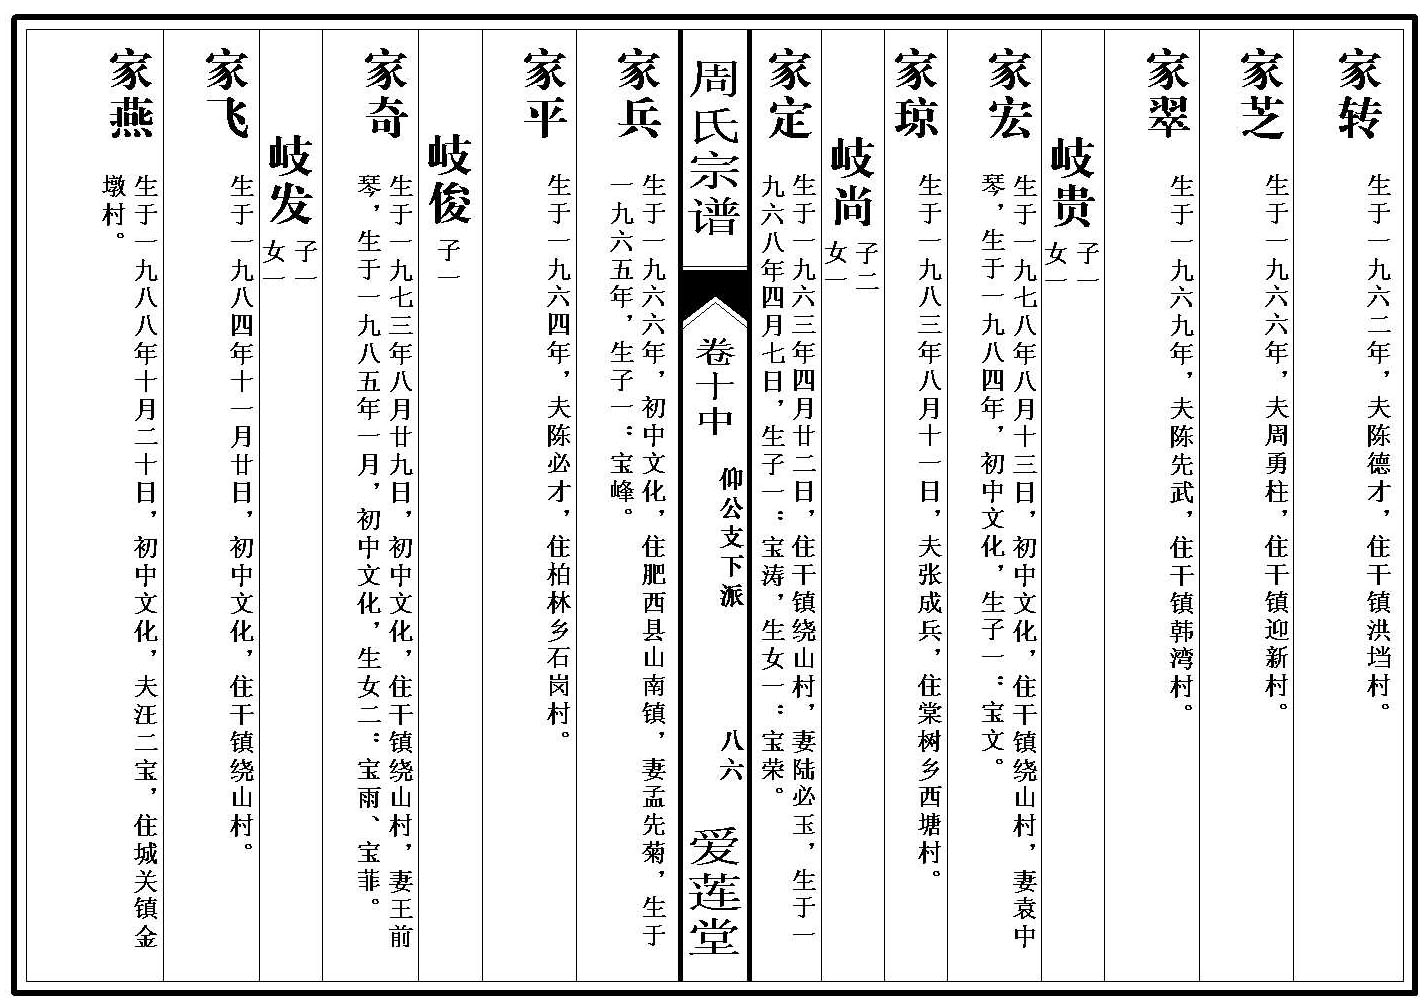 家转
生于一九六二年，夫陈德才，住干镇洪垱村。
家芝
生于一九六六年，夫周勇柱，住干镇迎新村。
家翠
生于一九六九年，夫陈先武，住干镇韩湾村。
岐贵
子一
女一
家宏
生于一九七八年八月十三日，初中文化，住干镇绕山村，妻袁中
琴，生于一九八四年，初中文化，生子一：宝文。
家琼
生于一九八三年八月十一日，夫张成兵，住棠树乡西塘村。
岐尚
子二
女一
家定
生于一九六三年四月廿二日，住干镇绕山村，妻陆必玉，生于一
九六八年四月七日，生子一：宝涛，生女一：宝荣。
周氏宗谱
卷十中
仰公支下派
八六
爱莲堂
家兵
生于一九六六年，初中文化，住肥西县山南镇，妻孟先菊，生于
一九六五年，生子一：宝峰。
家平
生于一九六四年，夫陈必才，住柏林乡石岗村。
岐俊
子一
家奇
生于一九七三年八月廿九日，初中文化，住干镇绕山村，妻王前
琴，生于一九八五年一月，初中文化，生女二：宝雨、宝菲。
岐发
子一
女一
家飞
生于一九八四年十一月廿日，初中文化，住干镇绕山村。
家燕
生于一九八八年十月二十日，初中文化，夫汪二宝，住城关镇金
墩村。